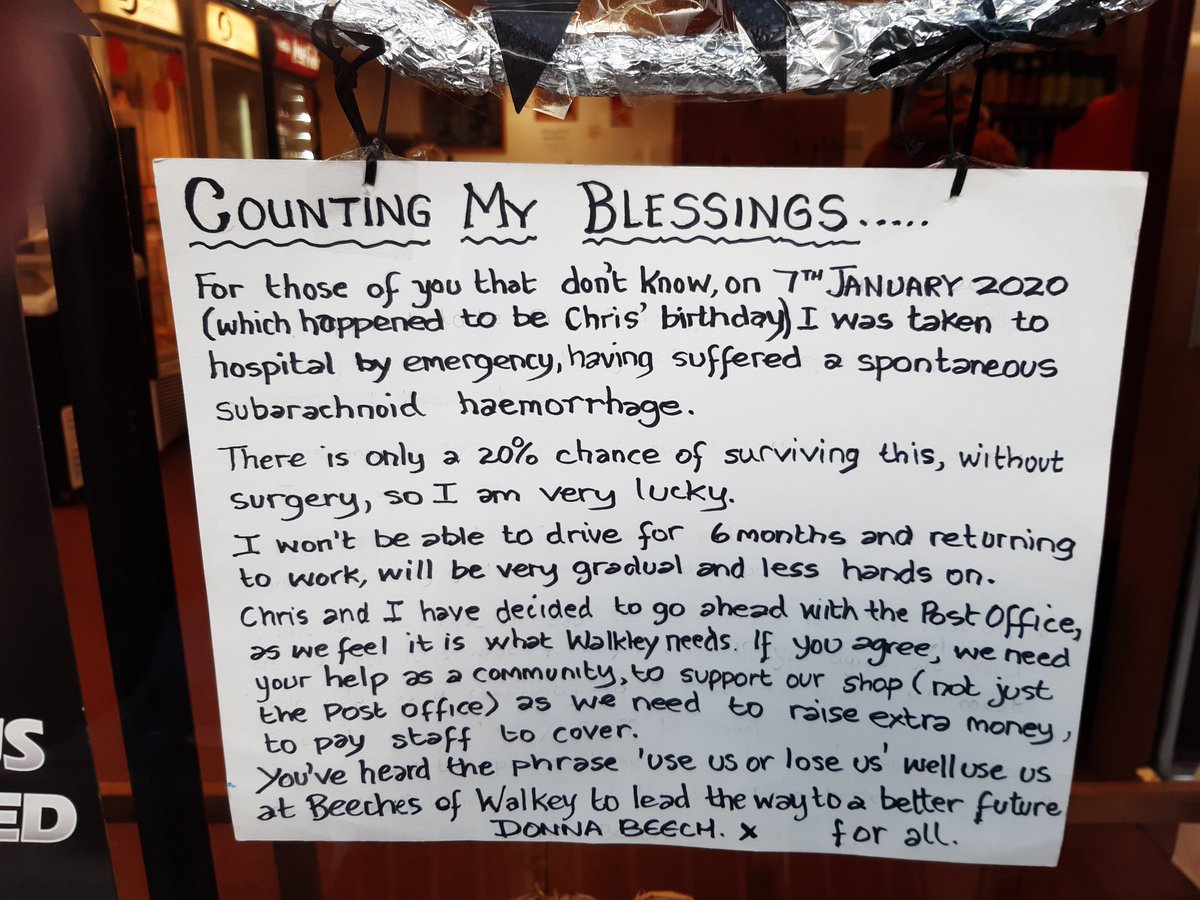 COUNTING MY BLESSINGS.....
For those of you that don't know, on 7TH JANUARY 2020
(which happened to be Chris' birthday) I was taken to
hospital by emergency, having suffered a spontaneous
subarachnoid haemorrhage.
There is only a 20% chance of surviving this, without
surgery, so I am very lucky.
I won't be able to drive for 6 months and returning
to work, will be very gradual and less hands on.
Chris and I have decided to go ahead with the Post Office,
as we feel it is what Walkley needs. If you agree, we need
your help as a community, to support our shop (not just
the Post Office) as we need to raise extra money,
to pay staff to cover.
You've heard the phrase 'use us or lose us' well use us
at Beeches of Walkey to lead the way to a better future
for all.
DONNA BEECH. x
US
ED